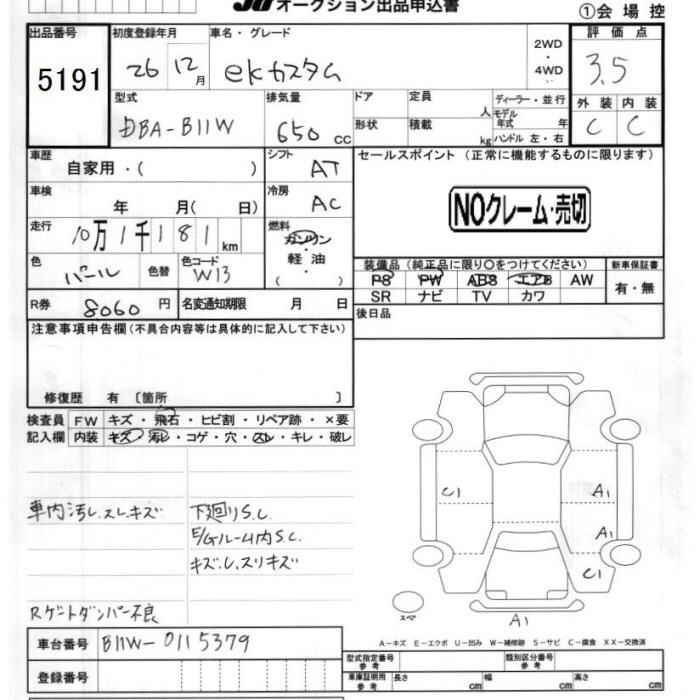 JU オークション出品申込書
①会場控
出品番号 初度登録年月 車名・グレード 2WD 評価点
5191 26 12月 ekカスタム 4WD 3.5
型式 排気量 ドア 定員 人 ディーラー・並行 外装 内装
DBA-B11W 650 cc 形状 積載 kg モデル年式 年 C C
ハンドル 左・右
車歴 自家用・( ) シフト AT セールスポイント (正常に機能するものに限ります)
車検 年 月( 日) 冷房 AC
NOクレーム・売切
走行 10万1千181km 燃料 ガソリン・軽油・( )
色 パール 色替 色コード W13
装備品(純正品に限り○をつけてください) 新車保証書
PS PW ABS エアB AW 有・無
SR ナビ TV カワ
R券 8060円 名変通知期限 月 日 後日品
注意事項申告欄(不具合内容等は具体的に記入して下さい)
修復歴 有 〔箇所 〕
検査員 FW キズ・飛石・ヒビ割・リペア跡・×要
記入欄 内装 キズ・汚レ・コゲ・穴・スレ・キレ・破レ
車内汚し、スレ、キズ
下廻りS.C
E/Gルーム内S.C.
キズ、し、スリキズ
Rゲートダンパー不良
C1
A1
A1
C1
スペア
A1
A-キズ E-エクボ U-凹み W-補修跡 S-サビ C-腐食 XX-交換済
車台番号 B11W-0115379
型式指定番号 参考 類別区分番号 参考
登録番号
車庫証明用 参考 長さ cm 幅 cm 高さ cm